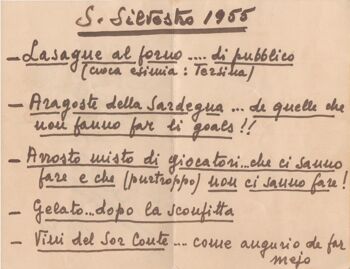 S. Silvestro 1955
- Lasagne al forno .... di pubblico
(cuoca esimia : Tersina)
- Aragoste della Sardegna ... de quelle che
non fanno far li goals!!
- Arrosto misto di giocatori... che ci sanno
fare e che (purtroppo) non ci sanno fare!
- Gelato... dopo la sconfitta
- Vini del Sor Conte ... come augurio de far
mejo